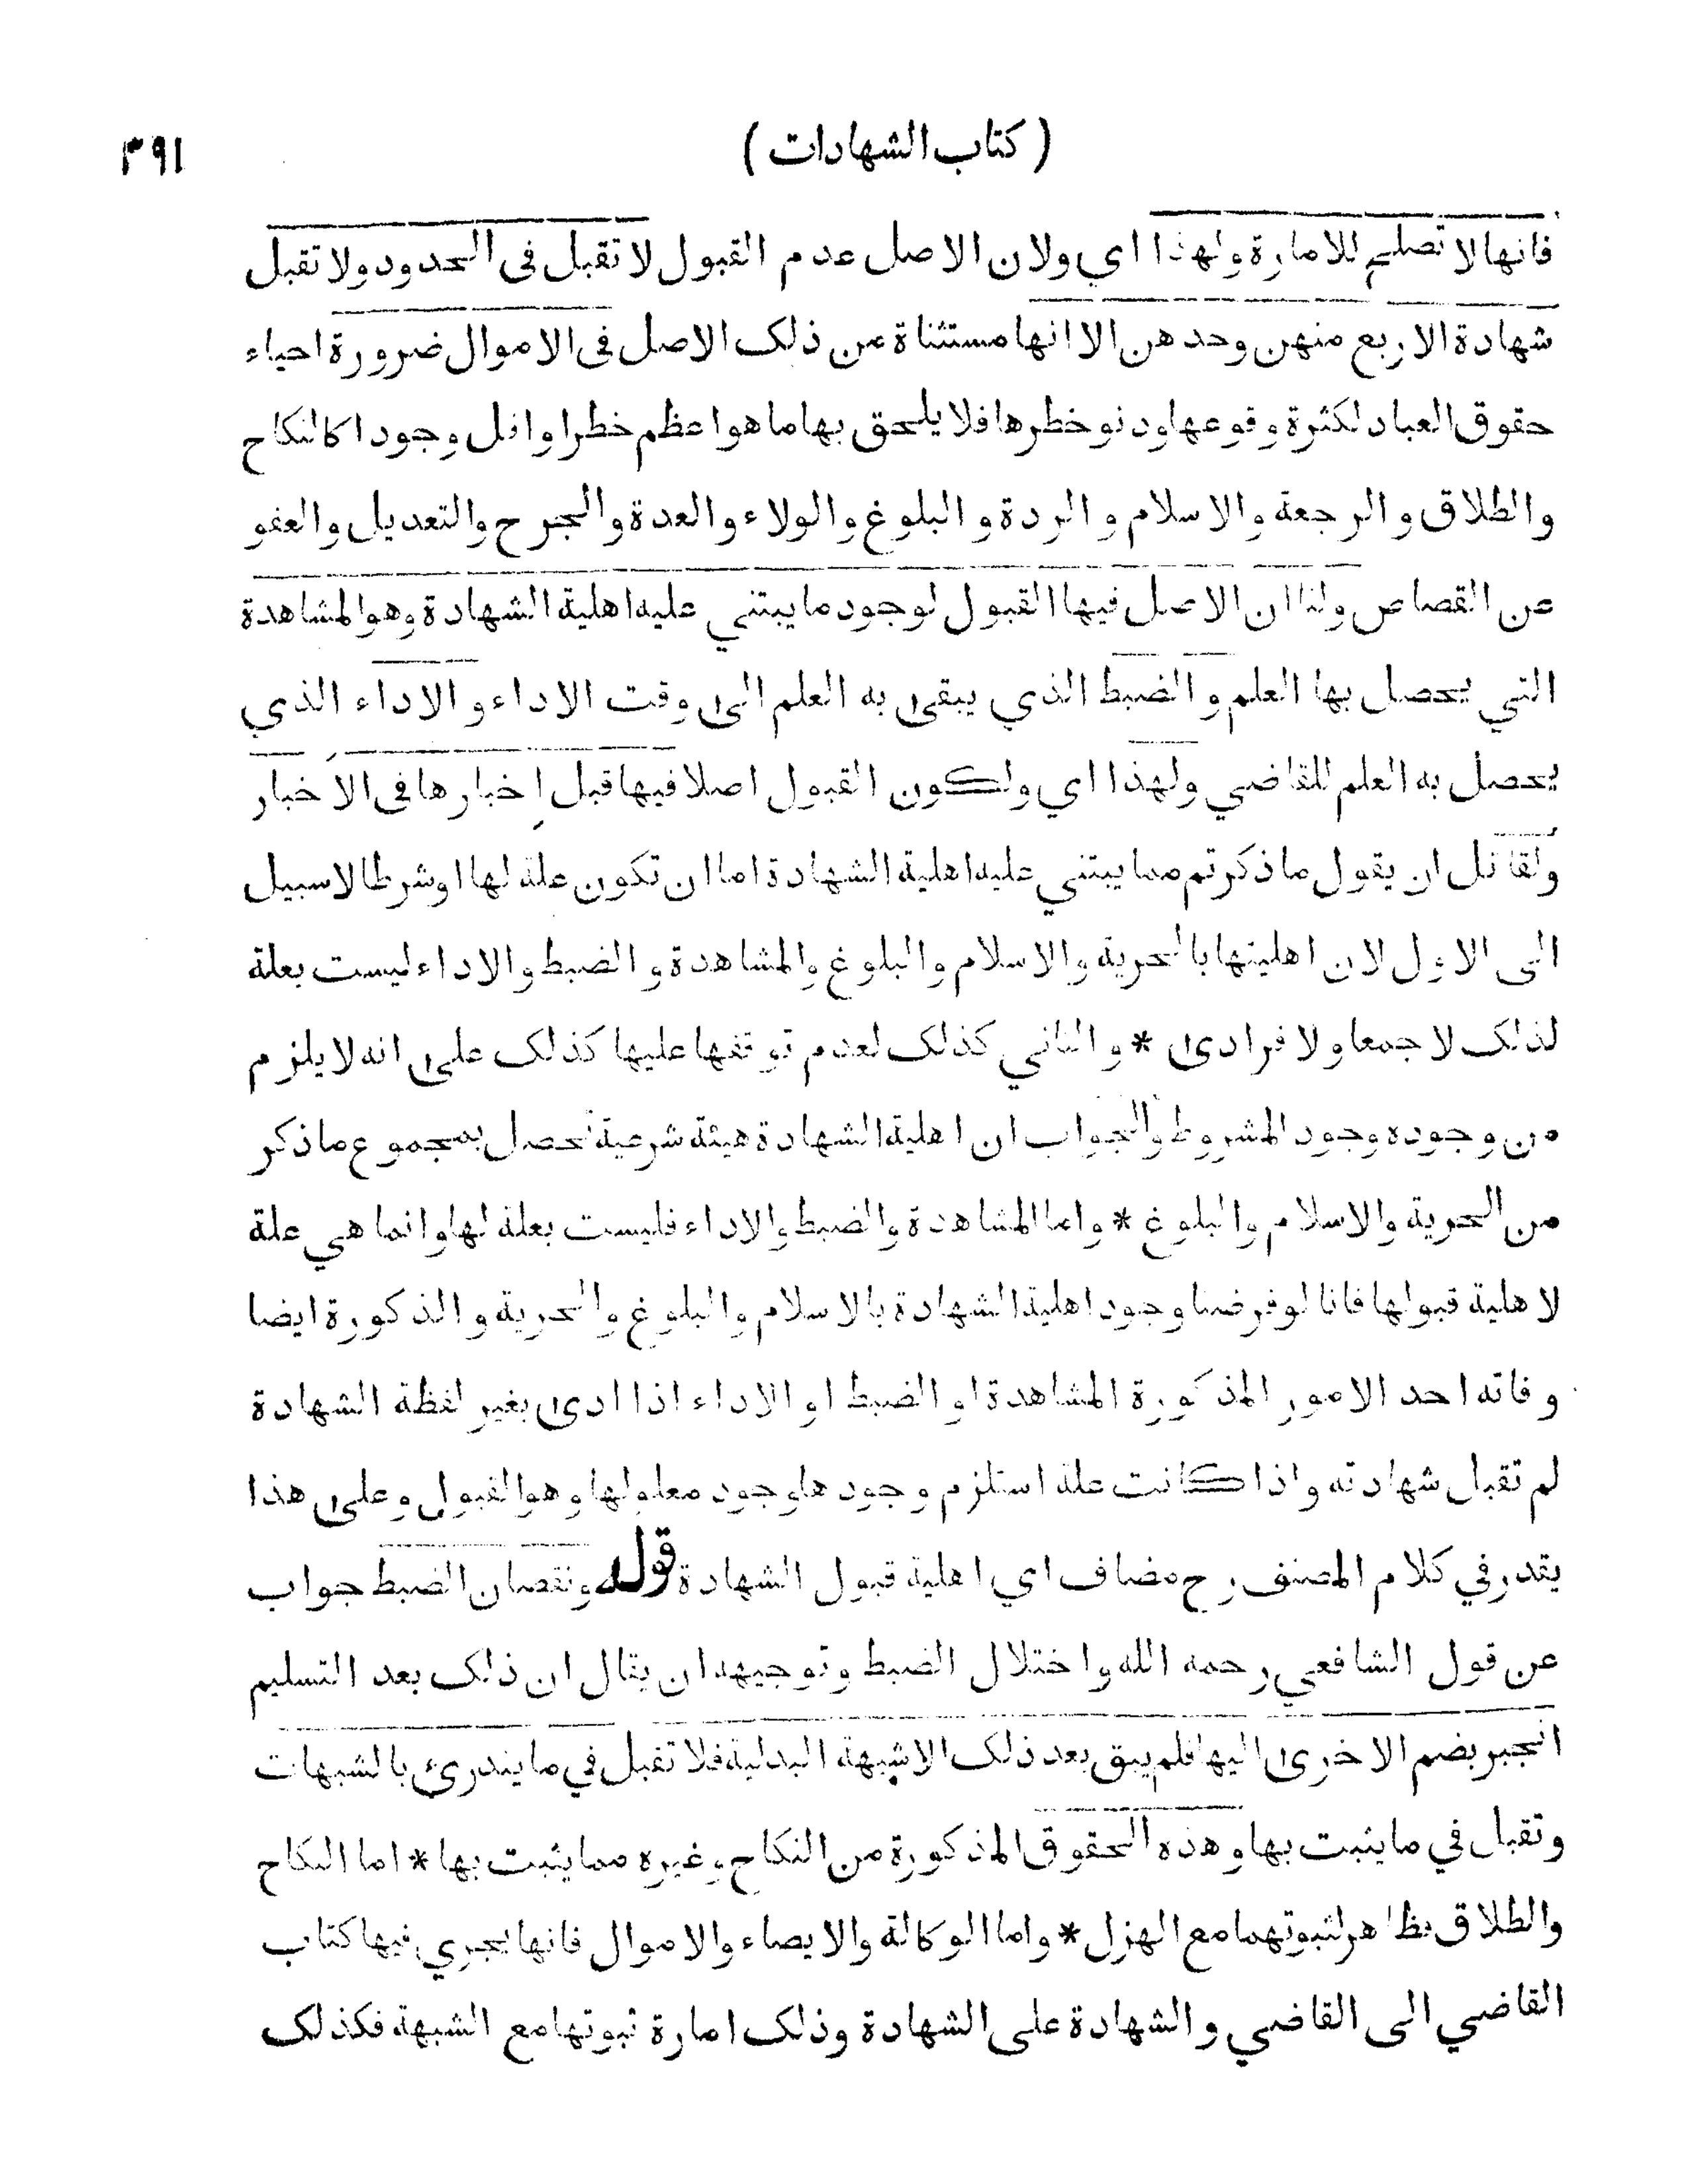 ( كتاب الشهادات ) ٣٩١
فانها لا تصلح للامارة ولهذا اي ولان الاصل عدم القبول لا تقبل في الحدود ولا تقبل
شهادة الاربع منهن وحدهن الا انها مستثناة من ذلك الاصل في الاموال ضرورة احياء
حقوق العباد لكثرة وقوعها ودنو خطرها فلا يلحق بها ما هو اعظم خطرا واقل وجودا كالنكاح
والطلاق والرجعة والاسلام والردة والبلوغ والولاء والعدة والجرح والتعديل والعفو
عن القصاص ولنا ان الاصل فيها القبول لوجود ما يبتني عليه اهلية الشهادة وهو المشاهدة
التي يحصل بها العلم والضبط الذي يبقى به العلم الى وقت الاداء والاداء الذي
يحصل به العلم للقاضي ولهذا اي ولكون القبول اصلا فيها قبل إخبارها في الأخبار
ولقائل ان يقول ما ذكرتم مما يبتني عليه اهلية الشهادة اما ان تكون علة لها او شرطا لا سبيل
الى الاول لان اهليتها بالحرية والاسلام والبلوغ والمشاهدة والضبط والاداء ليست بعلة
لذلك لا جمعا ولا فرادى * والثاني كذلك لعدم توقفها عليها كذلك على انه لا يلزم
من وجوده وجود المشروط والجواب ان اهلية الشهادة هيئة شرعية تحصل بمجموع ما ذكر
من الحرية والاسلام والبلوغ * واما المشاهدة والضبط والاداء فليست بعلة لها وانما هي علة
لاهلية قبولها فانا لو فرضنا وجود اهلية الشهادة بالاسلام والبلوغ والحرية والذكورة ايضا
وفاته احد الامور المذكورة المشاهدة او الضبط او الاداء اذا ادى بغير لفظة الشهادة
لم تقبل شهادته واذا كانت علة استلزم وجودها وجود معلولها وهو القبول وعلى هذا
يقدر في كلام المصنف رح مضاف اي اهلية قبول الشهادة قوله ونقصان الضبط جواب
عن قول الشافعي رحمه الله واختلال الضبط وتوجيهه ان يقال ان ذلك بعد التسليم
انجبر بضم الاخرى اليها فلم يبق بعد ذلك الا شبهة البدلية فلا تقبل في ما يندرئ بالشبهات
وتقبل في ما يثبت بها وهذه الحقوق المذكورة من النكاح وغيره مما يثبت بها * اما النكاح
والطلاق فظاهر لثبوتهما مع الهزل * واما الوكالة والايصاء والاموال فانها يجري فيها كتاب
القاضي الى القاضي والشهادة على الشهادة وذلك امارة ثبوتها مع الشبهة فكذلك